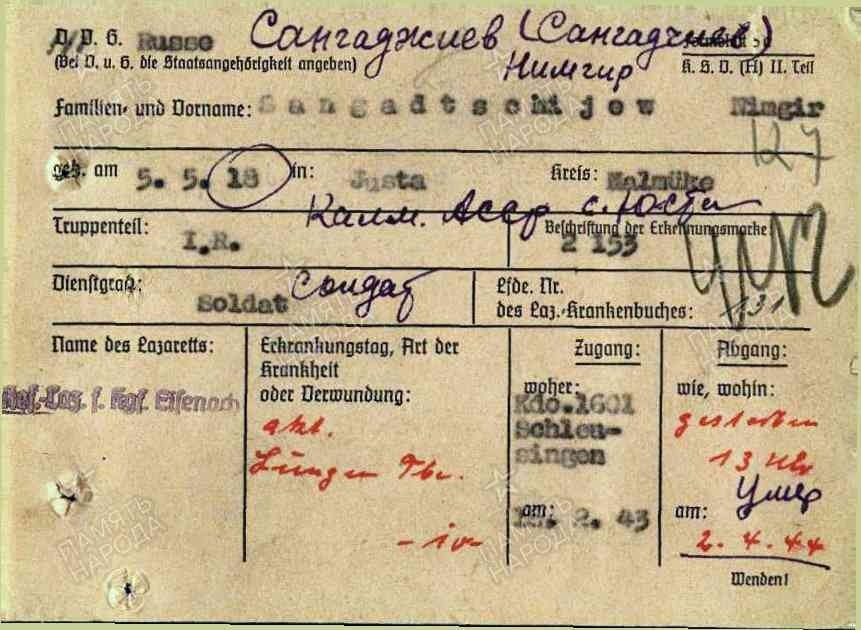 D. V. G. Russe Сангаджиев (Сангадчиев)
(Bei D. u. G. die Staatsangehörigkeit angeben) Нимгир K. S. D. (H) II. Teil
Familien- und Vorname: Sangadtschijew Nimgir
127
geb. am 5. 5. 18 in: Justa Kreis: Kalmüke
Калм. Асср с. Юста
Truppenteil: I.R. Beschriftung der Erkennungsmarke
2 153
Dienstgrad: Soldat солдат Lfde. Nr.
des Laz.-Krankenbuches: 131
Name des Lazaretts: Erkrankungstag, Art der Krankheit oder Verwundung: Zugang: Abgang:
woher: wie, wohin:
Laz. f. Kgf. Eisenach
Kdo.1601
Schleu-
singen
akt.
Lungen Tbc.
- iv -
gestorben
13 Uhr
умер
am: 2. 43 am:
2. 4. 44
Wenden!
ПАМЯТЬ НАРОДА
ПАМЯТЬ НАРОДА
ПАМЯТЬ НАРОДА
ПАМЯТЬ НАРОДА